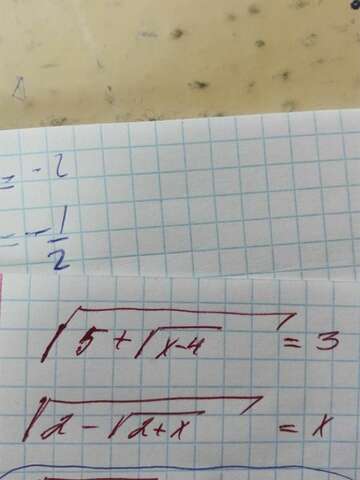 = -2
= -1/2
√(5+√(x-4)) = 3
√(2-√(2+x)) = x